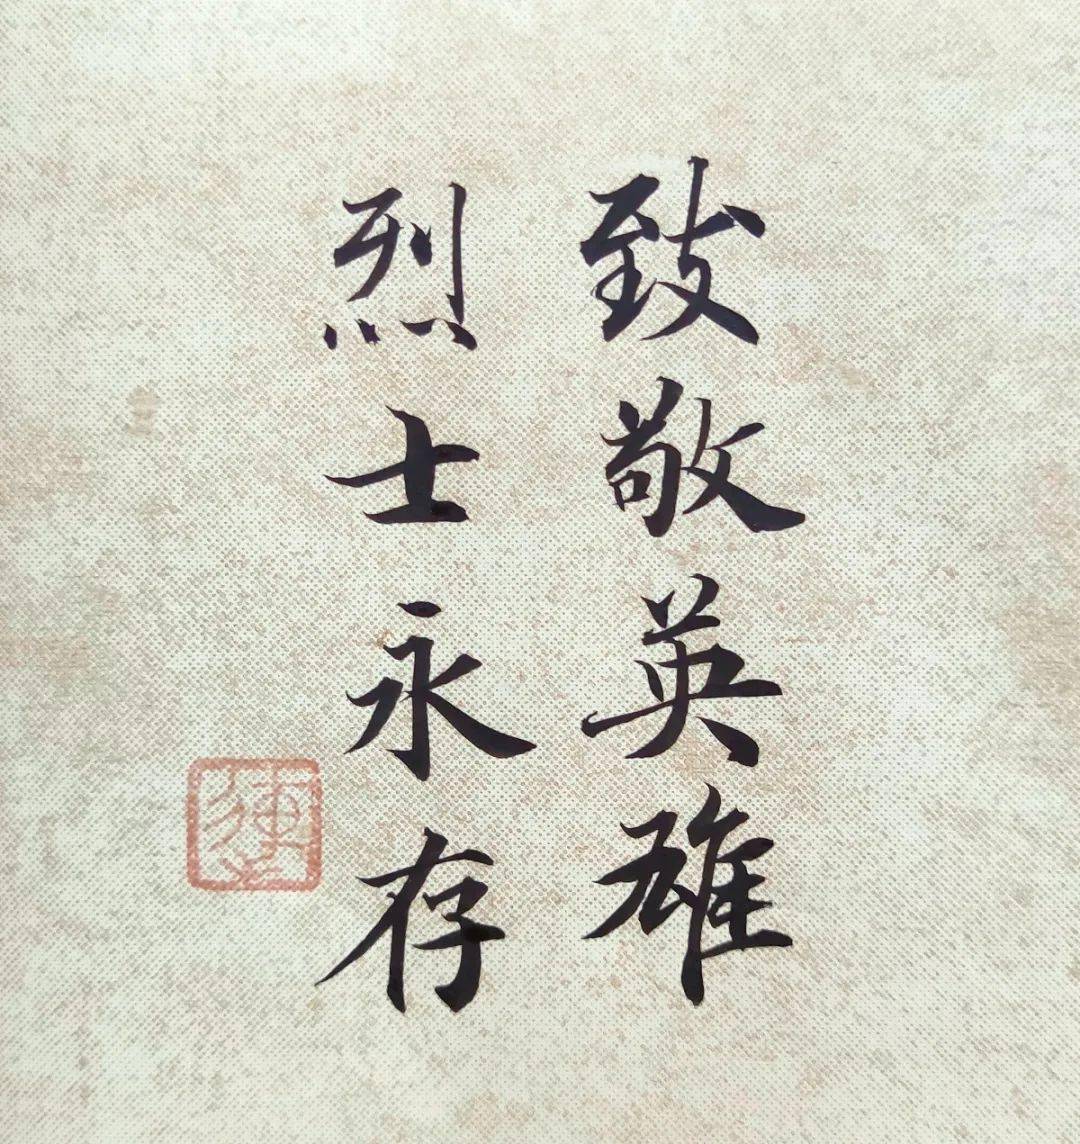 致敬英雄
烈士永存